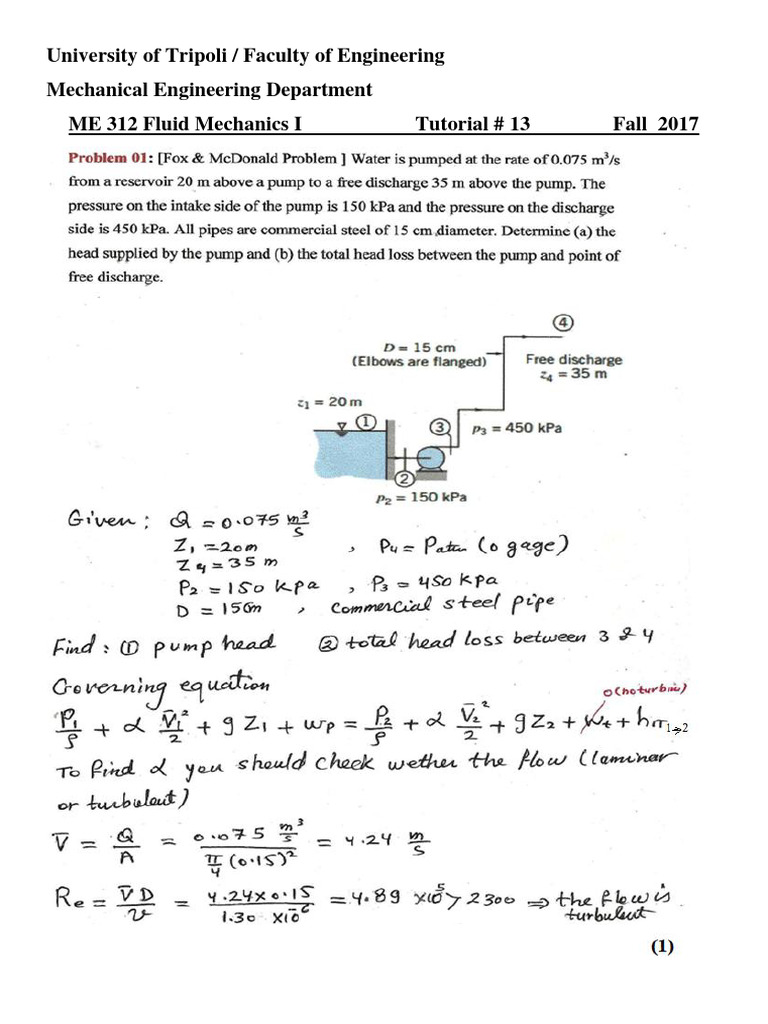 University of Tripoli / Faculty of Engineering
Mechanical Engineering Department
ME 312 Fluid Mechanics I Tutorial # 13 Fall 2017
Problem 01: [Fox & McDonald Problem ] Water is pumped at the rate of 0.075 m³/s
from a reservoir 20 m above a pump to a free discharge 35 m above the pump. The
pressure on the intake side of the pump is 150 kPa and the pressure on the discharge
side is 450 kPa. All pipes are commercial steel of 15 cm diameter. Determine (a) the
head supplied by the pump and (b) the total head loss between the pump and point of
free discharge.
④
D = 15 cm
(Elbows are flanged)
Free discharge
z₄ = 35 m
z₁ = 20 m
①
③
p₃ = 450 kPa
②
p₂ = 150 kPa
Given : Q = 0.075 m³/s
Z₁ = 20m , P4 = Patm (0 gage)
Z4 = 35 m
P2 = 150 kpa , P3 = 450 kpa
D = 15Cm , Commercial steel pipe
Find : ① pump head ② total head loss between 3 & 4
Governing equation
0 (no turbine)
P1/ρ + α V̄1²/2 + g Z1 + wp = P2/ρ + α V̄2²/2 + g Z2 + wt + hm 1→2
To Find α you should check wether the flow (laminar
or turbulent)
V̄ = Q/A = 0.075 m³/s / π/4 (0.15)² = 4.24 m/s
Re = V̄ D/ν = 4.24x0.15 / 1.30 x10⁻⁶ = 4.89 x10⁵ > 2300 ⇒ the flow is
turbulent
(1)